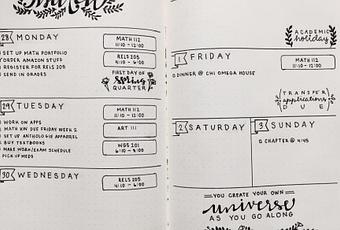 28 MONDAY
SET UP MATH PORTFOLIO
ORDER AMAZON STUFF
REGISTER FOR RELS 205
SEND IN GRADES
MATH 112
11:10 - 12:00
RELS 205
FIRST DAY OF
Spring
QUARTER
29 TUESDAY
WORK ON APPS
MATH XIN DUE FRIDAY WEEK 2
SET UP ANTHOLOGIE APPAREL
BUY TEXTBOOKS
MAKE WORK/EXAM SCHEDULE
PICK UP MEDS
MATH 112
11:10 - 12:00
ART 111
WGS 201
30 WEDNESDAY
RELS 205
ACADEMIC
holiday
1 FRIDAY
DINNER @ CHI OMEGA HOUSE
MATH 112
11:10 - 12:00
TRANSFER
applications
DUE
2 SATURDAY
3 SUNDAY
CHAPTER @ 4:45
YOU CREATE YOUR OWN
universe
AS YOU GO ALONG